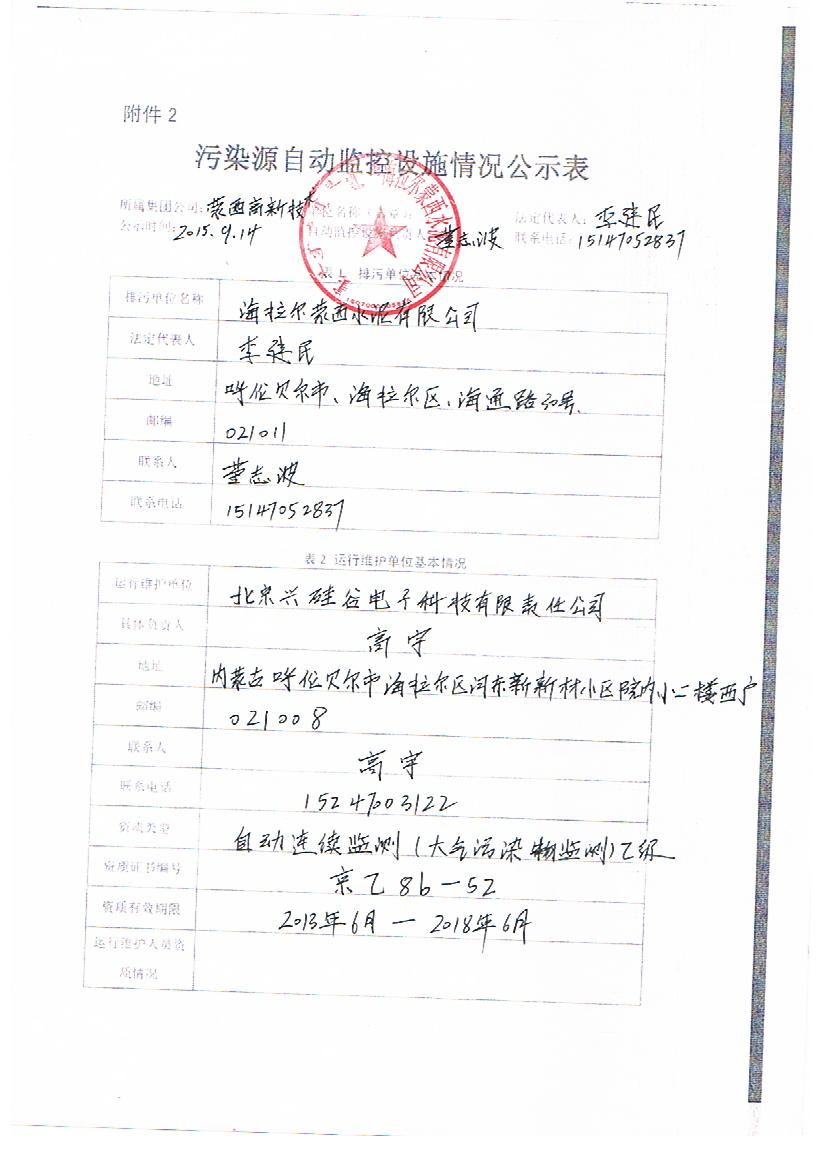 附件2
污染源自动监控设施情况公示表
所属集团公司:蒙西高新技术 单位名称(盖章): 法定代表人:李建民
公示时间:2015.9.14 自动监控设施负责人 董志波 联系电话:15147052837
海拉尔蒙西水泥有限公司
表1 排污单位基本情况
排污单位名称 海拉尔蒙西水泥有限公司
法定代表人 李建民
地址 呼伦贝尔市、海拉尔区、海通路30号.
邮编 021011
联系人 董志波
联系电话 15147052837
表2 运行维护单位基本情况
运行维护单位 北京兴硅谷电子科技有限责任公司
具体负责人 高宇
地址 内蒙古呼伦贝尔市海拉尔区河东新新材小区院内小二楼西户
邮编 021008
联系人 高宇
联系电话 15247003122
资质类型 自动连续监测(大气污染物监测)乙级
资质证书编号 京乙8b-52
资质有效期限 2013年6月—2018年6月
运行维护人员资
质情况